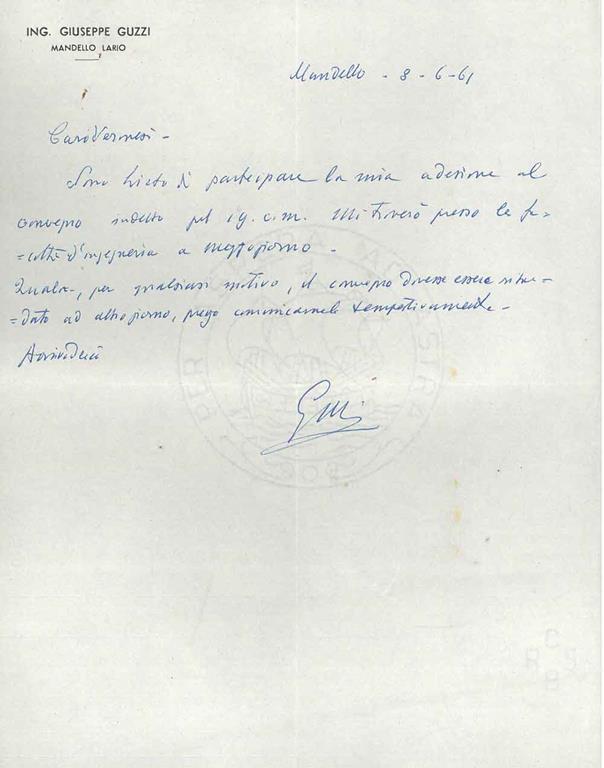 ING. GIUSEPPE GUZZI
MANDELLO LARIO
Mandello - 8 - 6 - 61
Caro Vermesi -
Sono lieto di partecipare la mia adesione al
convegno indetto pel 19. c. m. Mi troverò presso la fa-
=coltà d'ingegneria a mezzogiorno -
Qualora, per qualsiasi motivo, il convegno dovesse essere riman-
=dato ad altro giorno, prego comunicarmelo tempestivamente -
Arrivederci
Guzzi
PER
C
R S
B